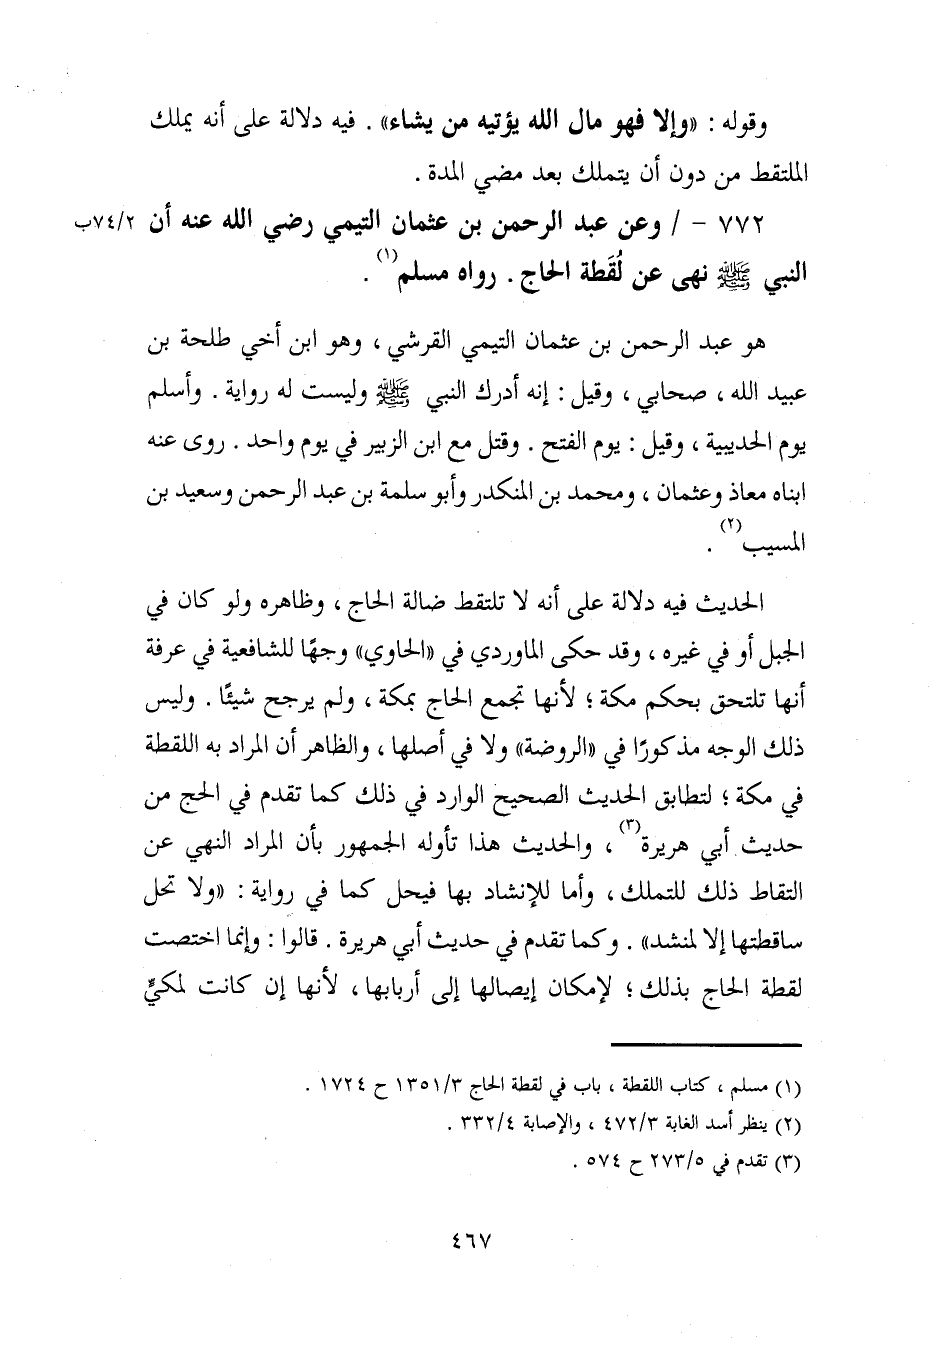 وقوله : «وإلا فهو مال الله يؤتيه من يشاء» . فيه دلالة على أنه يملك
الملتقط من دون أن يتملك بعد مضي المدة .
٧٧٢ - / وعن عبد الرحمن بن عثمان التيمي رضي الله عنه أن ٧٤/٢ب
النبي ﷺ نهى عن لُقَطة الحاج . رواه مسلم(١) .
هو عبد الرحمن بن عثمان التيمي القرشي ، وهو ابن أخي طلحة بن
عبيد الله ، صحابي ، وقيل : إنه أدرك النبي ﷺ وليست له رواية . وأسلم
يوم الحديبية ، وقيل : يوم الفتح . وقتل مع ابن الزبير في يوم واحد . روى عنه
ابناه معاذ وعثمان ، ومحمد بن المنكدر وأبو سلمة بن عبد الرحمن وسعيد بن
المسيب(٢) .
الحديث فيه دلالة على أنه لا تلتقط ضالة الحاج ، وظاهره ولو كان في
الجبل أو في غيره ، وقد حكى الماوردي في «الحاوي» وجهًا للشافعية في عرفة
أنها تلتحق بحكم مكة ؛ لأنها تجمع الحاج بمكة ، ولم يرجح شيئًا . وليس
ذلك الوجه مذكورًا في «الروضة» ولا في أصلها ، والظاهر أن المراد به اللقطة
في مكة ؛ لتطابق الحديث الصحيح الوارد في ذلك كما تقدم في الحج من
حديث أبي هريرة(٣) ، والحديث هذا تأوله الجمهور بأن المراد النهي عن
التقاط ذلك للتملك ، وأما للإنشاد بها فيحل كما في رواية : «ولا تحل
ساقطتها إلا لمنشد» . وكما تقدم في حديث أبي هريرة . قالوا : وإنما اختصت
لقطة الحاج بذلك ؛ لإمكان إيصالها إلى أربابها ، لأنها إن كانت لمكيٍّ
(١) مسلم ، كتاب اللقطة ، باب في لقطة الحاج ١٣٥١/٣ ح ١٧٢٤ .
(٢) ينظر أسد الغابة ٤٧٢/٣ ، والإصابة ٣٣٢/٤ .
(٣) تقدم في ٢٧٣/٥ ح ٥٧٤ .
٤٦٧